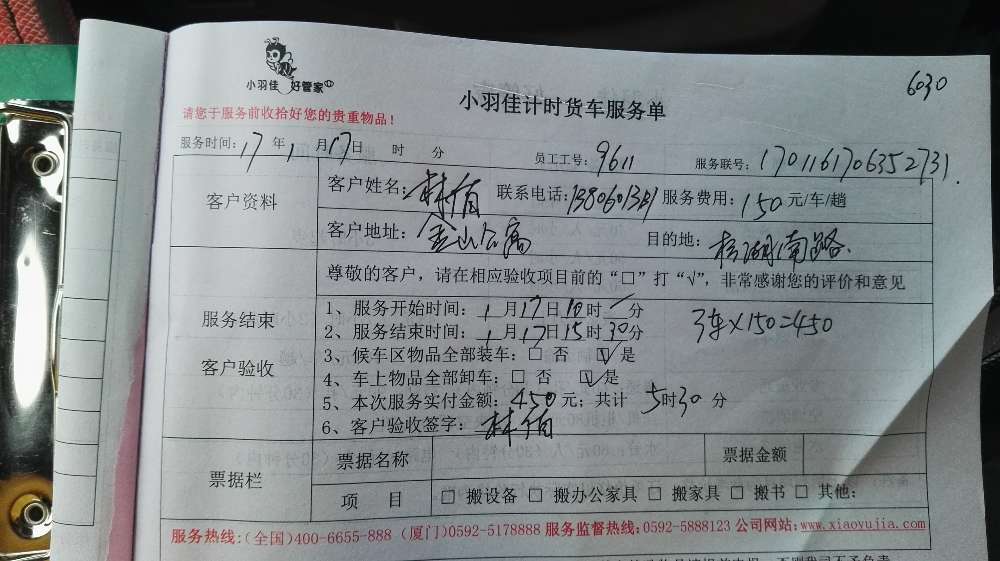 6030
小羽佳 好管家
小羽佳计时货车服务单
请您于服务前收拾好您的贵重物品!
服务时间: 17 年 1 月 17 日 时 分 员工工号: 9611 服务联号: 1701161706352731
客户资料
客户姓名: 林伯 联系电话: 服务费用: 150 元/车/趟
客户地址: 金山公寓 目的地: 湖南路
尊敬的客户,请在相应验收项目前的“□”打“√”,非常感谢您的评价和意见
服务结束
客户验收
1、服务开始时间: 1 月 17 日 10 时 分
2、服务结束时间: 1 月 17 日 15 时 30 分
3车×150=450
3、候车区物品全部装车: □ 否 ☑ 是
4、车上物品全部卸车: □ 否 ☑ 是
5、本次服务实付金额: 450 元; 共计 5 时 30 分
6、客户验收签字: 林伯
票据栏
票据名称 票据金额
项 目 □ 搬设备 □ 搬办公家具 □ 搬家具 □ 搬书 □ 其他:
服务热线:(全国)400-6655-888 (厦门)0592-5178888 服务监督热线:0592-5888123 公司网站:www.xiaoyujia.com